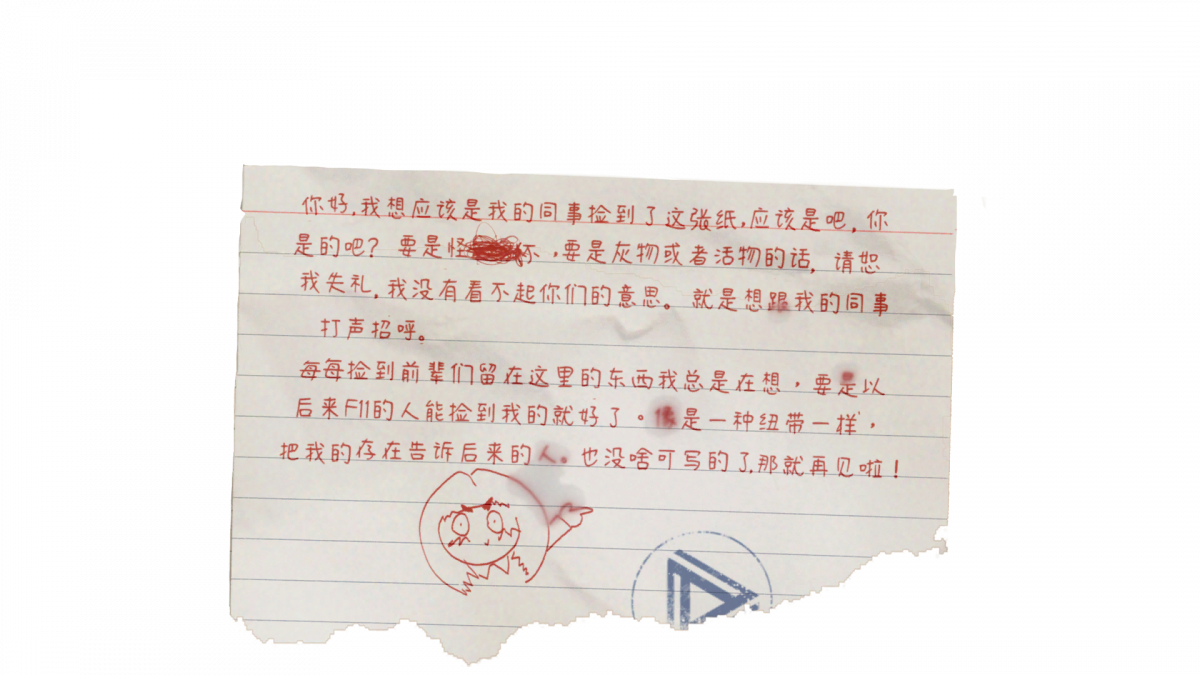 你好,我想应该是我的同事捡到了这张纸,应该是吧,你
是的吧? 要是怪 ,要是灰物或者活物的话, 请恕
我失礼,我没有看不起你们的意思。就是想跟我的同事
打声招呼。
每每捡到前辈们留在这里的东西我总是在想,要是以
后来F11的人能捡到我的就好了。像是一种纽带一样,
把我的存在告诉后来的人。也没啥可写的了,那就再见啦!